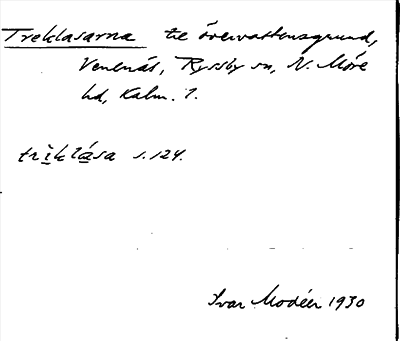 Treklasarna tre övervattensgrund,
Venenäs, Ryssby sn, N. Möre
hd, Kalm. l.
triklása s. 124.
Ivar Modéer 1930